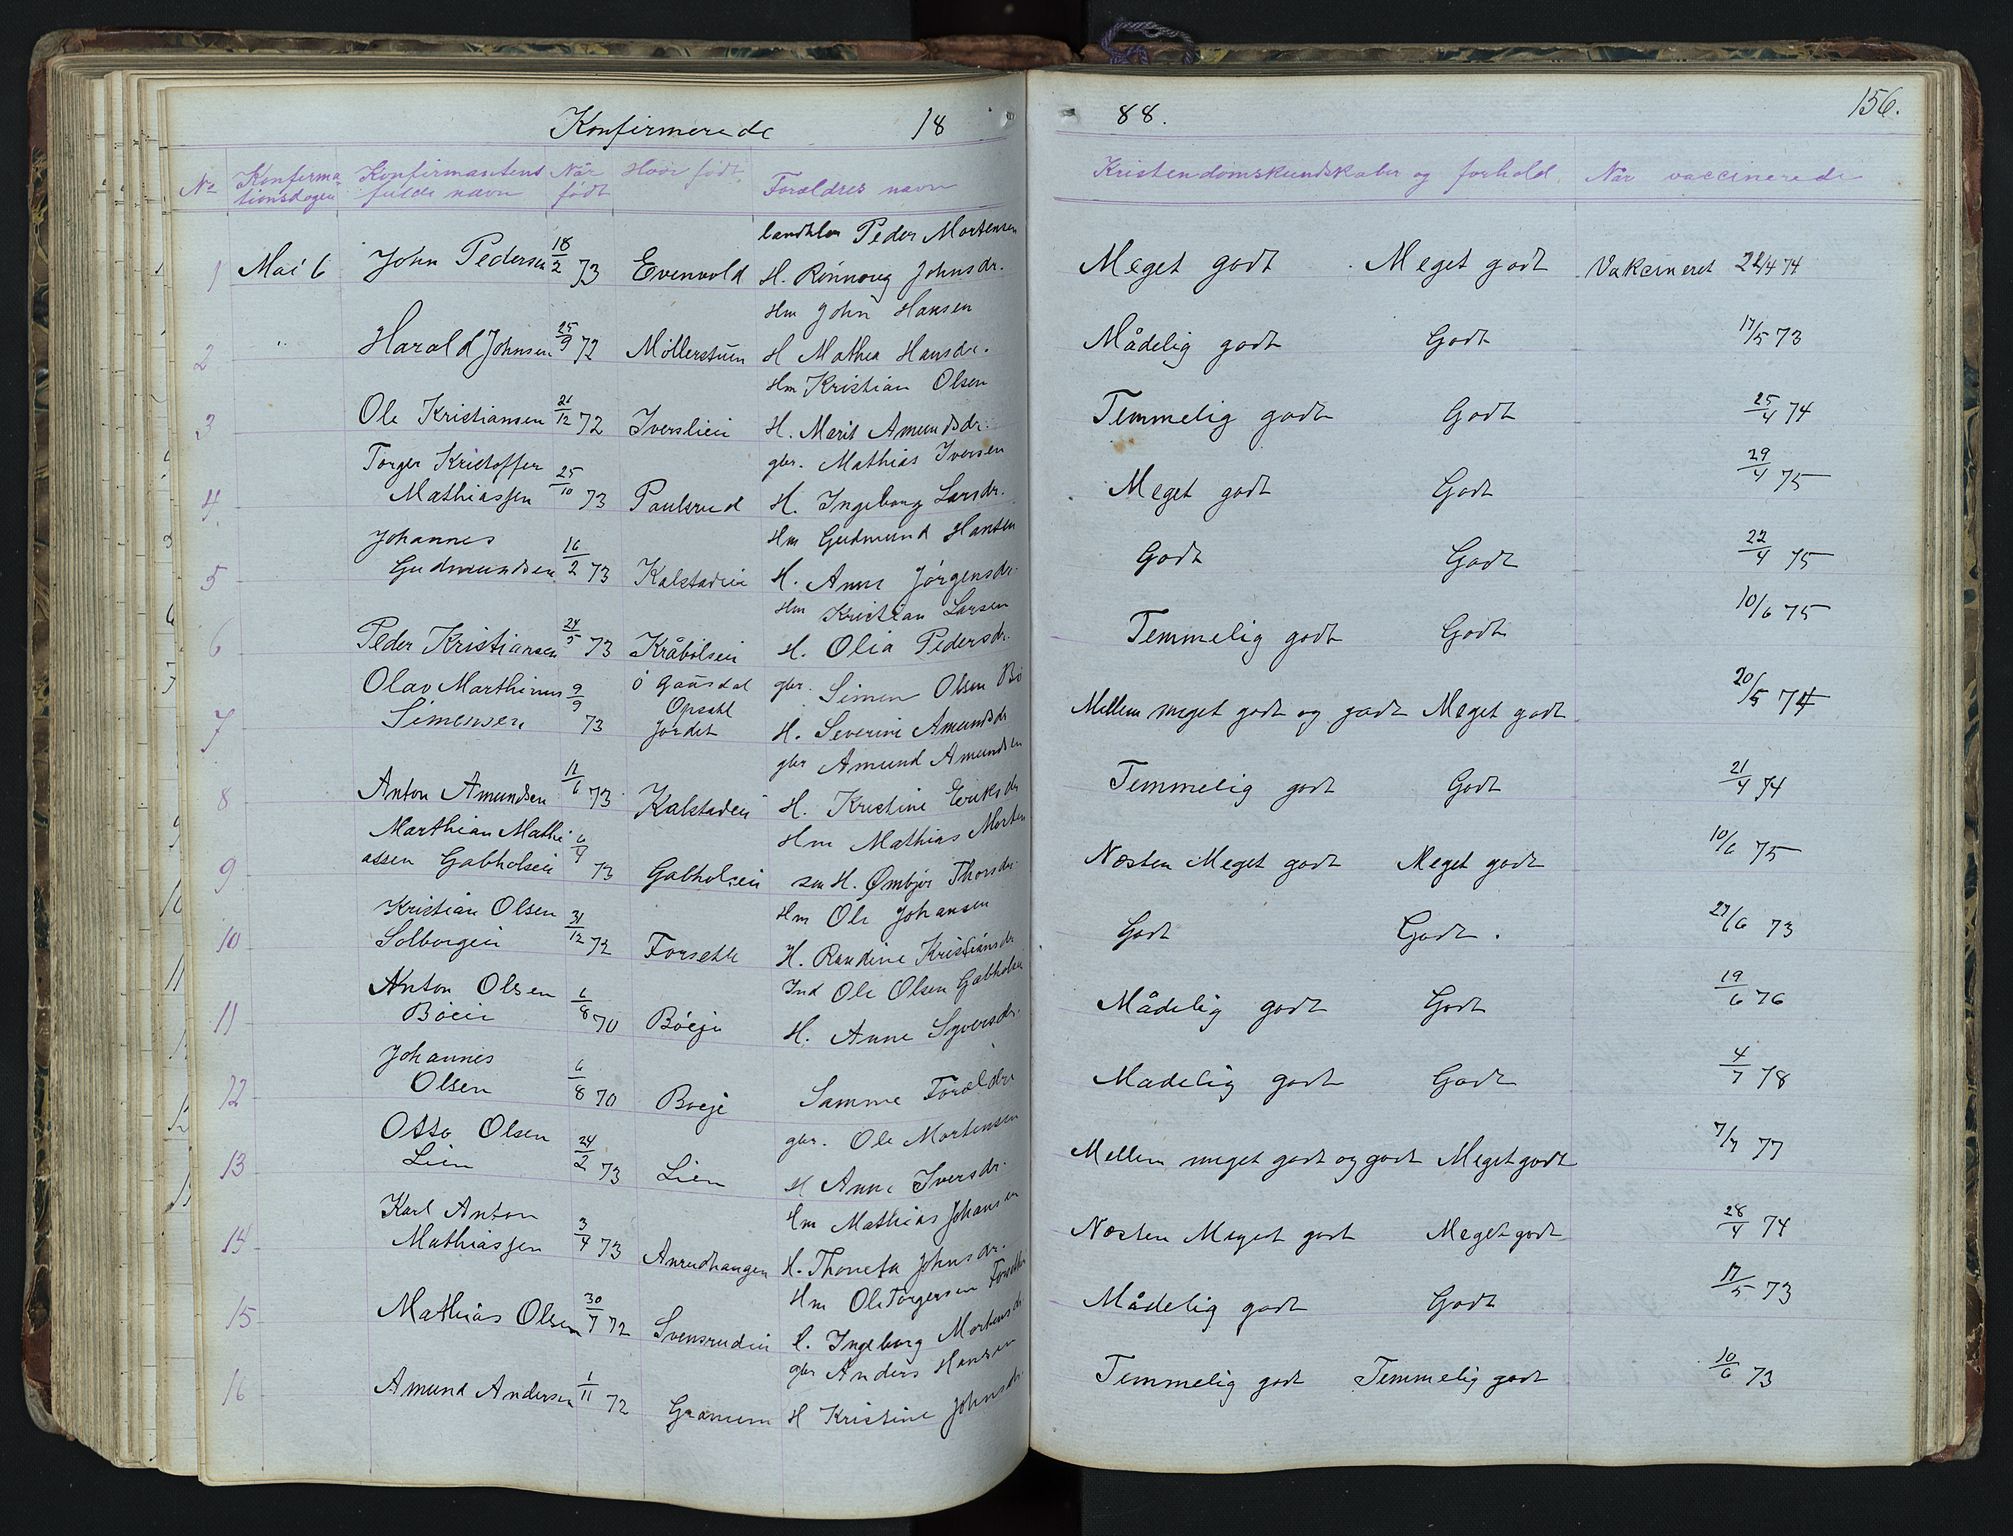 Konfirmerede 18 88. 156.
No Konfirmationsdagen Konfirmantens fulde navn Når født Hvor født Forældres navn Kristendomskundskaber og forhold. Når vaccinerede
landhlr Peder Mortensen
1 Mai 6 John Pedersen 18/2 73 Evenvold H. Rønnoug Johnsdr. Meget godt . Meget godt Vakcineret 22/4 74
Hm John Hansen
2 " Harald Johnsen 25/9 72 Møllerstuen H Mathea Hansdr. Mådelig godt Godt 17/5 73
Hm Kristian Olsen
3 Ole Kristiansen 21/12 72 Iverslien H. Marit Amundsdr. Temmelig godt Godt 25/4 74
Torger Kristoffer gbr. Mathias Iversen
4 Mathiassen 25/10 73 Paulsrud H. Ingeborg Larsdr. Meget godt Godt 29/4 75
Johannes Hm Gudmund Hansen
5 Gudmundsen 16/2 73 Kalstadeie H. Anne Jørgensdr. Godt Godt 22/4 75
Hm Kristian Larsen
6 Peder Kristiansen 24/5 73 Kråbølseie H. Olia Pedersdr. Temmelig godt Godt 10/6 75
Olav Marthinus 9/9 Ø Gausdal gbr. Simen Olsen Bø
Opsahl
7 Simensen 73 Jordet H. Severine Amundsdr Mellem meget godt og godt Meget godt 20/5 74
gbr Amund Amundsen
8 Anton Amundsen 12/6 73 Kalstadeie H. Kristine Eriksdr Temmelig godt Godt 21/4 74
Marthian Mathi Hm Mathias Morten
9 assen Gabholseie 6/4 73 Gabholseie sen H. Ømbjør Thorsdr. Næsten Meget godt Meget godt 10/6 75
Kristian Olsen Hm Ole Johansen
10 Solborgeie 31/12 72 Forseth H. Randine Kristiansdr Godt Godt. 27/6 73
Anton Olsen Ind Ole Olsen Gabholseie
11 Bøeie 6/8 70 Bøeje H. Anne Syversdr. Mådelig godt Godt 19/6 76
Johannes
12 Olsen 6/8 70 Bøeje Samme Forældre Madelig godt Godt 4/7 78
Otto Olsen gbr. Ole Mortensen
13 Lien 24/2 73 Lien H Anne Iversdr. Mellem meget godt og godt Meget godt 7/7 77
Karl Anton Hm Mathias Johansen
14 Mathiassen 3/4 73 Anrudhaugen H. Thoneta Johnsdr. Næsten Meget godt Meget godt 28/4 74
Hm Ole Torgersen
15 Mathias Olsen 30/7 72 Svensrudeie H. Ingeborg Mortensdr Mådelig godt Godt 17/5 73
gbr Anders Hansen
16 Amund Andersen 1/11 72 Granum H Kristine Johnsdr. Temmelig godt Temmelig godt 10/6 73